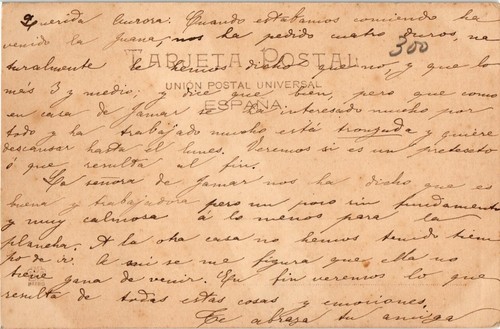 Querida Aurora: Cuando estabamos comiendo ha
venido la Juana, nos ha pedido cuatro duros, na
300
TARJETA POSTAL
turalmente le hemos dicho que no, y que lo
UNION POSTAL UNIVERSAL
más 3 y medio; y dice que bien, pero que como
ESPAÑA
en casa de Jamar se ha interesado mucho por
todo y ha trabajado mucho está tronzada y quiere
descansar hasta el lunes. Veremos si es un pretesto
ó que resulta al fin.
La señora de Jamar nos ha dicho que es
buena y trabajadora pero un poco sin fundamento
y muy calmosa á lo menos para la
plancha. A la otra casa no hemos tenido tiem
po de ir. A mi se me figura que ella no
tiene gana de venir. En fin veremos lo que
resulta de todas estas cosas y emociones.
Te abraza tu amiga